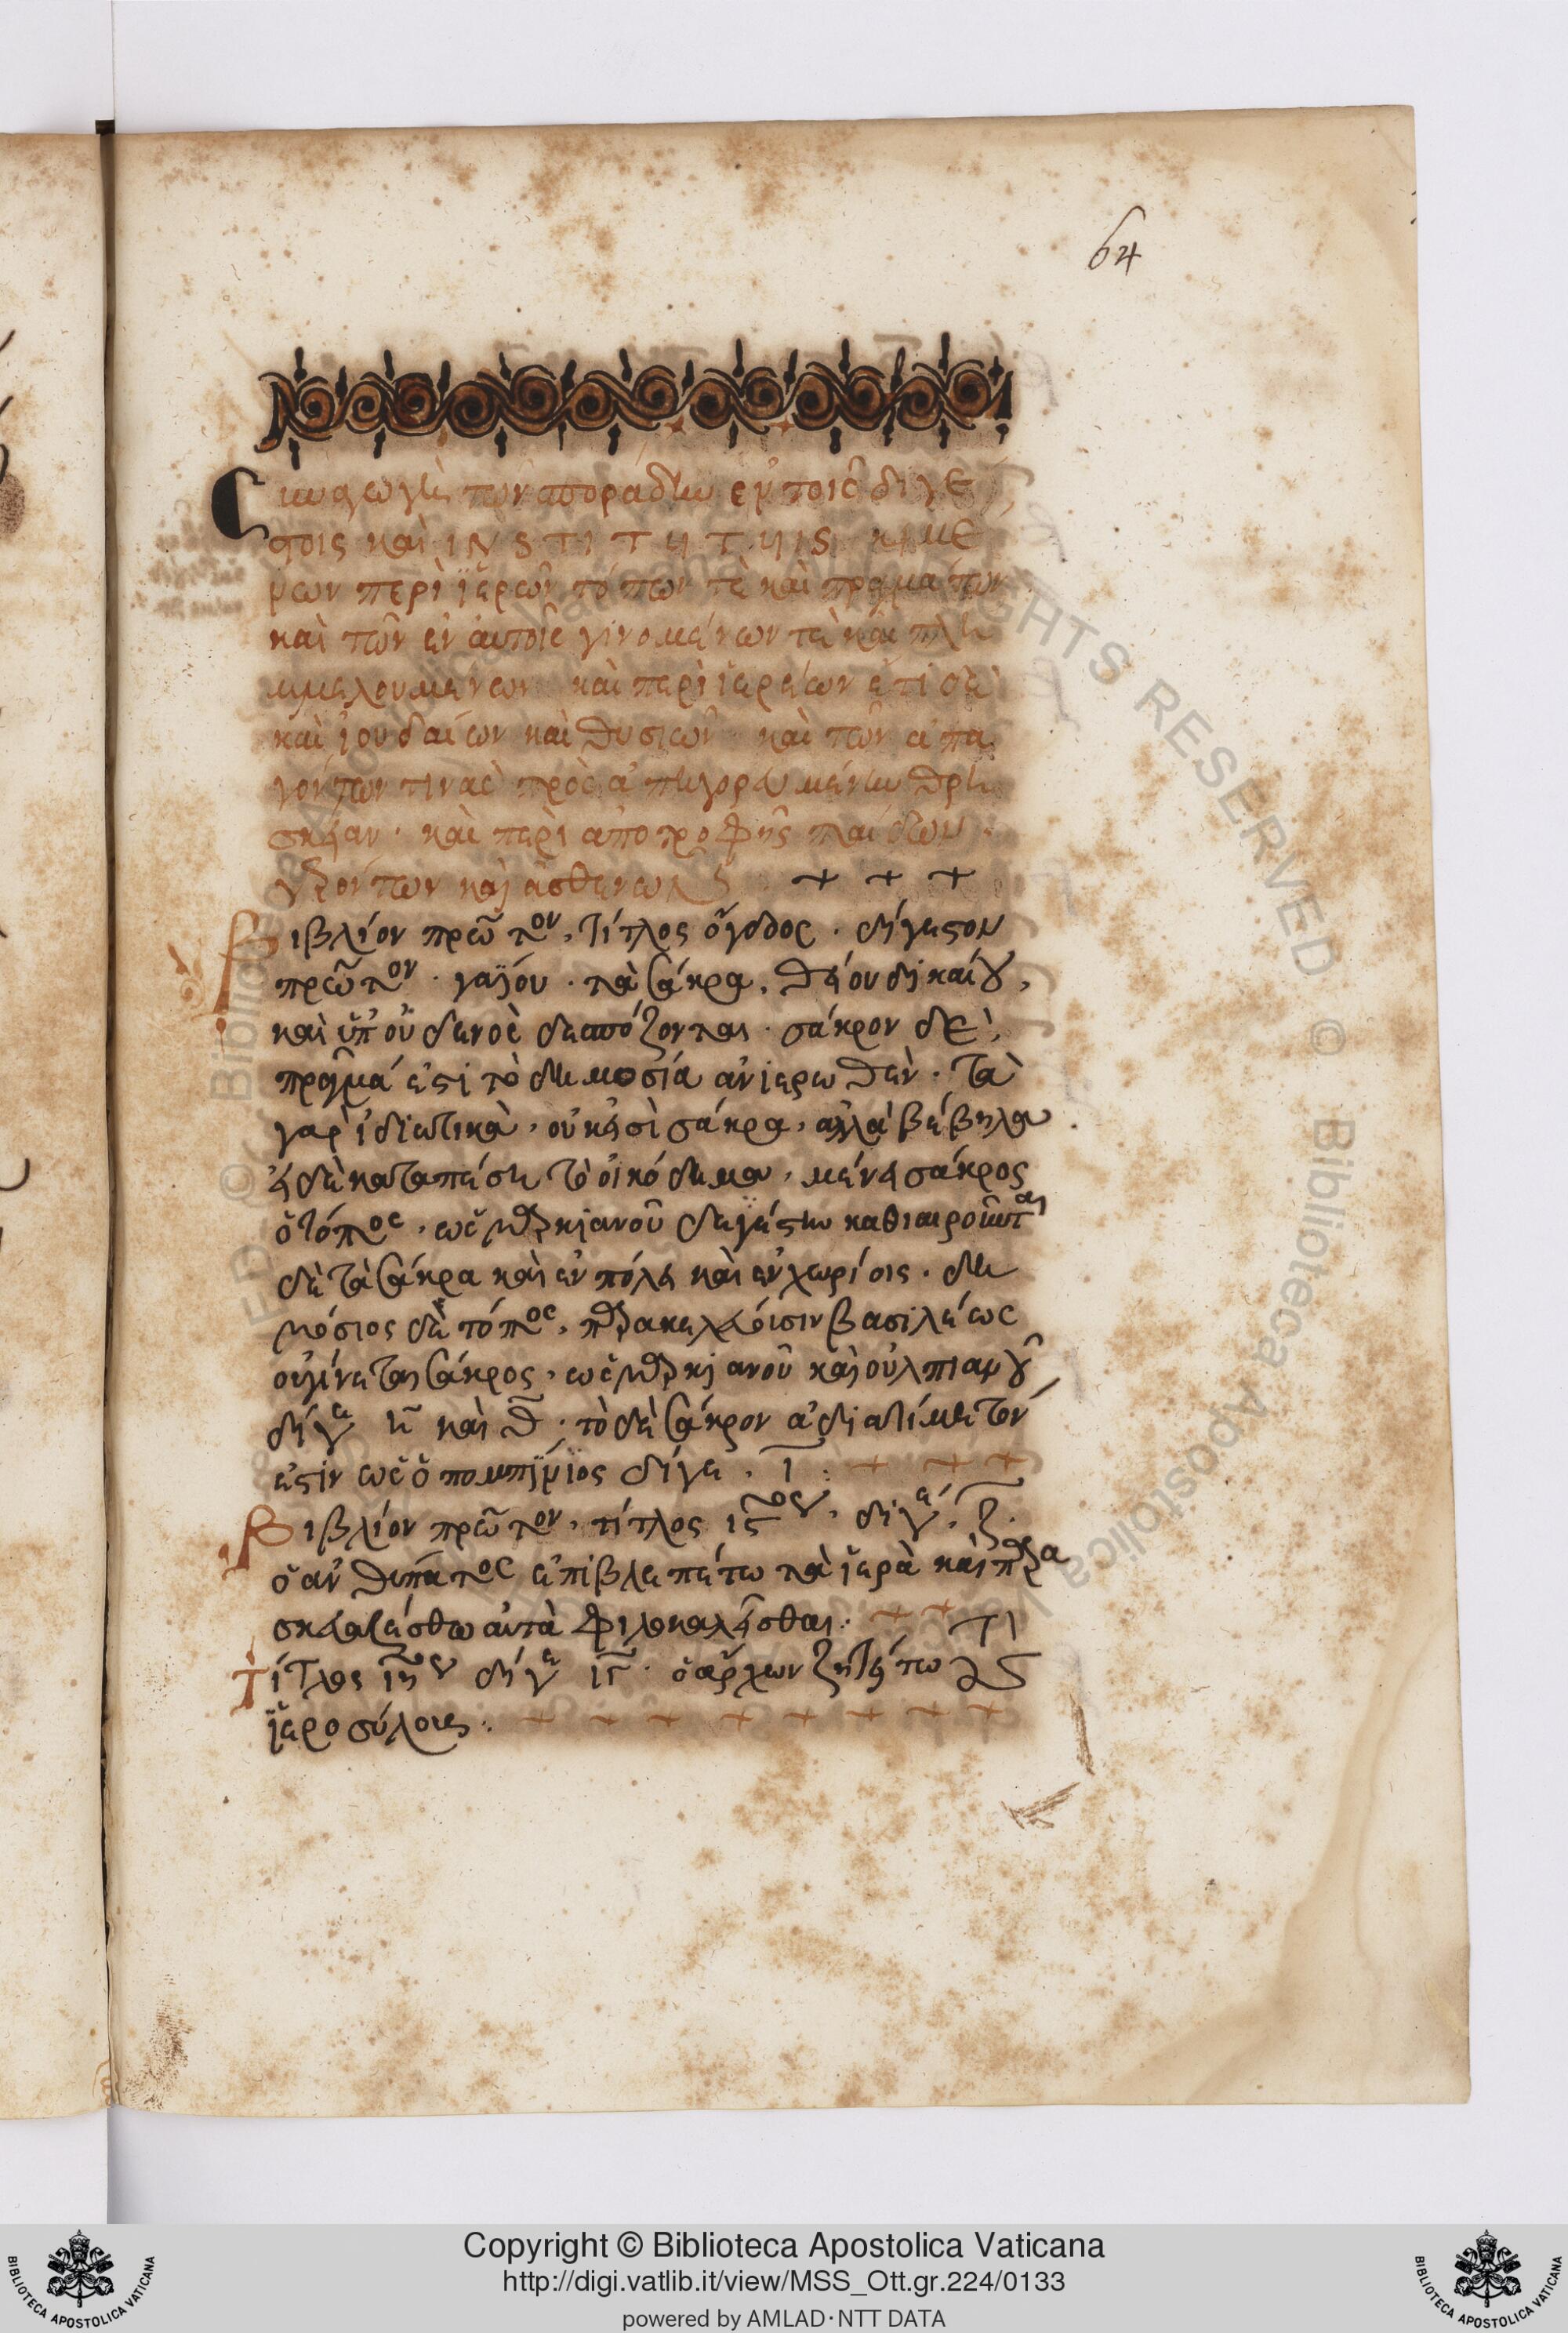 64
Συναγωγὴ τῶν σποράδην ἐν τοῖς διγέ
στοις καὶ INSTITUTUIS κιμέ
νων περὶ ἱερῶν τόπων τὲ καὶ πραγμάτων
καὶ τῶν ἐν αὐτοῖς γινομένων τὲ καὶ πλη
μμελουμένων καὶ περὶ ἱερέων ἔτι δὲ
καὶ ἰουδαίων καὶ θυσιῶν· καὶ τῶν ἀπα
γόντων τινὰς πρὸς ἀπηγορευμένην θρη
σκείαν· καὶ περὶ ἀποτροφῆς παίδων·
γερόντων καὶ ἀσθενῶν
Βιβλίον πρῶτον, τίτλος ὄγδοος. δίγεστον
πρῶτον. γαΐου. τὰ σάκρα, θείου δικαίου,
καὶ ὑπ' οὐδενὸς δεσπόζονται. σάκρον δὲ,
πρᾶγμά ἐστι τὸ δημοσία ἀνιερωθέν. τὰ
γὰρ ἰδιωτικὰ, οὐκ εἰσὶ σάκρα, ἀλλὰ βέβηλα
εἰ δὲ καταπέση τὸ οἰκόδημα, μένει σάκρος
ὁ τόπος, ὡς μαρκιανοῦ διγέστω καθιεροῦνται
δὲ τὰ σάκρα καὶ ἐν πόλει καὶ ἐν χωρίοις. δη
μόσιος δὲ τόπος, παρακελεύσιν βασιλέως
γίνεται σάκρος, ὡς μαρκιανοῦ καὶ οὐλπιανοῦ
διγε η καὶ θ. τὸ δὲ σάκρον ἀδιατίμητόν
ἐστιν ὡς ὁ πομπώνιος διγε. ι
Βιβλίον πρῶτον, τίτλος ις, διγε. ζ.
ὁ ἀνθύπατος ἐπιβλεπέτω τὰ ἱερὰ καὶ παρα
σκευαζέσθω αὐτὰ φιλοκαλεῖσθαι.
Τίτλος ιη διγε ιγ. ὁ ἄρχων ζητείτω
ἱεροσύλους.
Copyright © Biblioteca Apostolica Vaticana
http://digi.vatlib.it/view/MSS_Ott.gr.224/0133
powered by AMLAD·NTT DATA